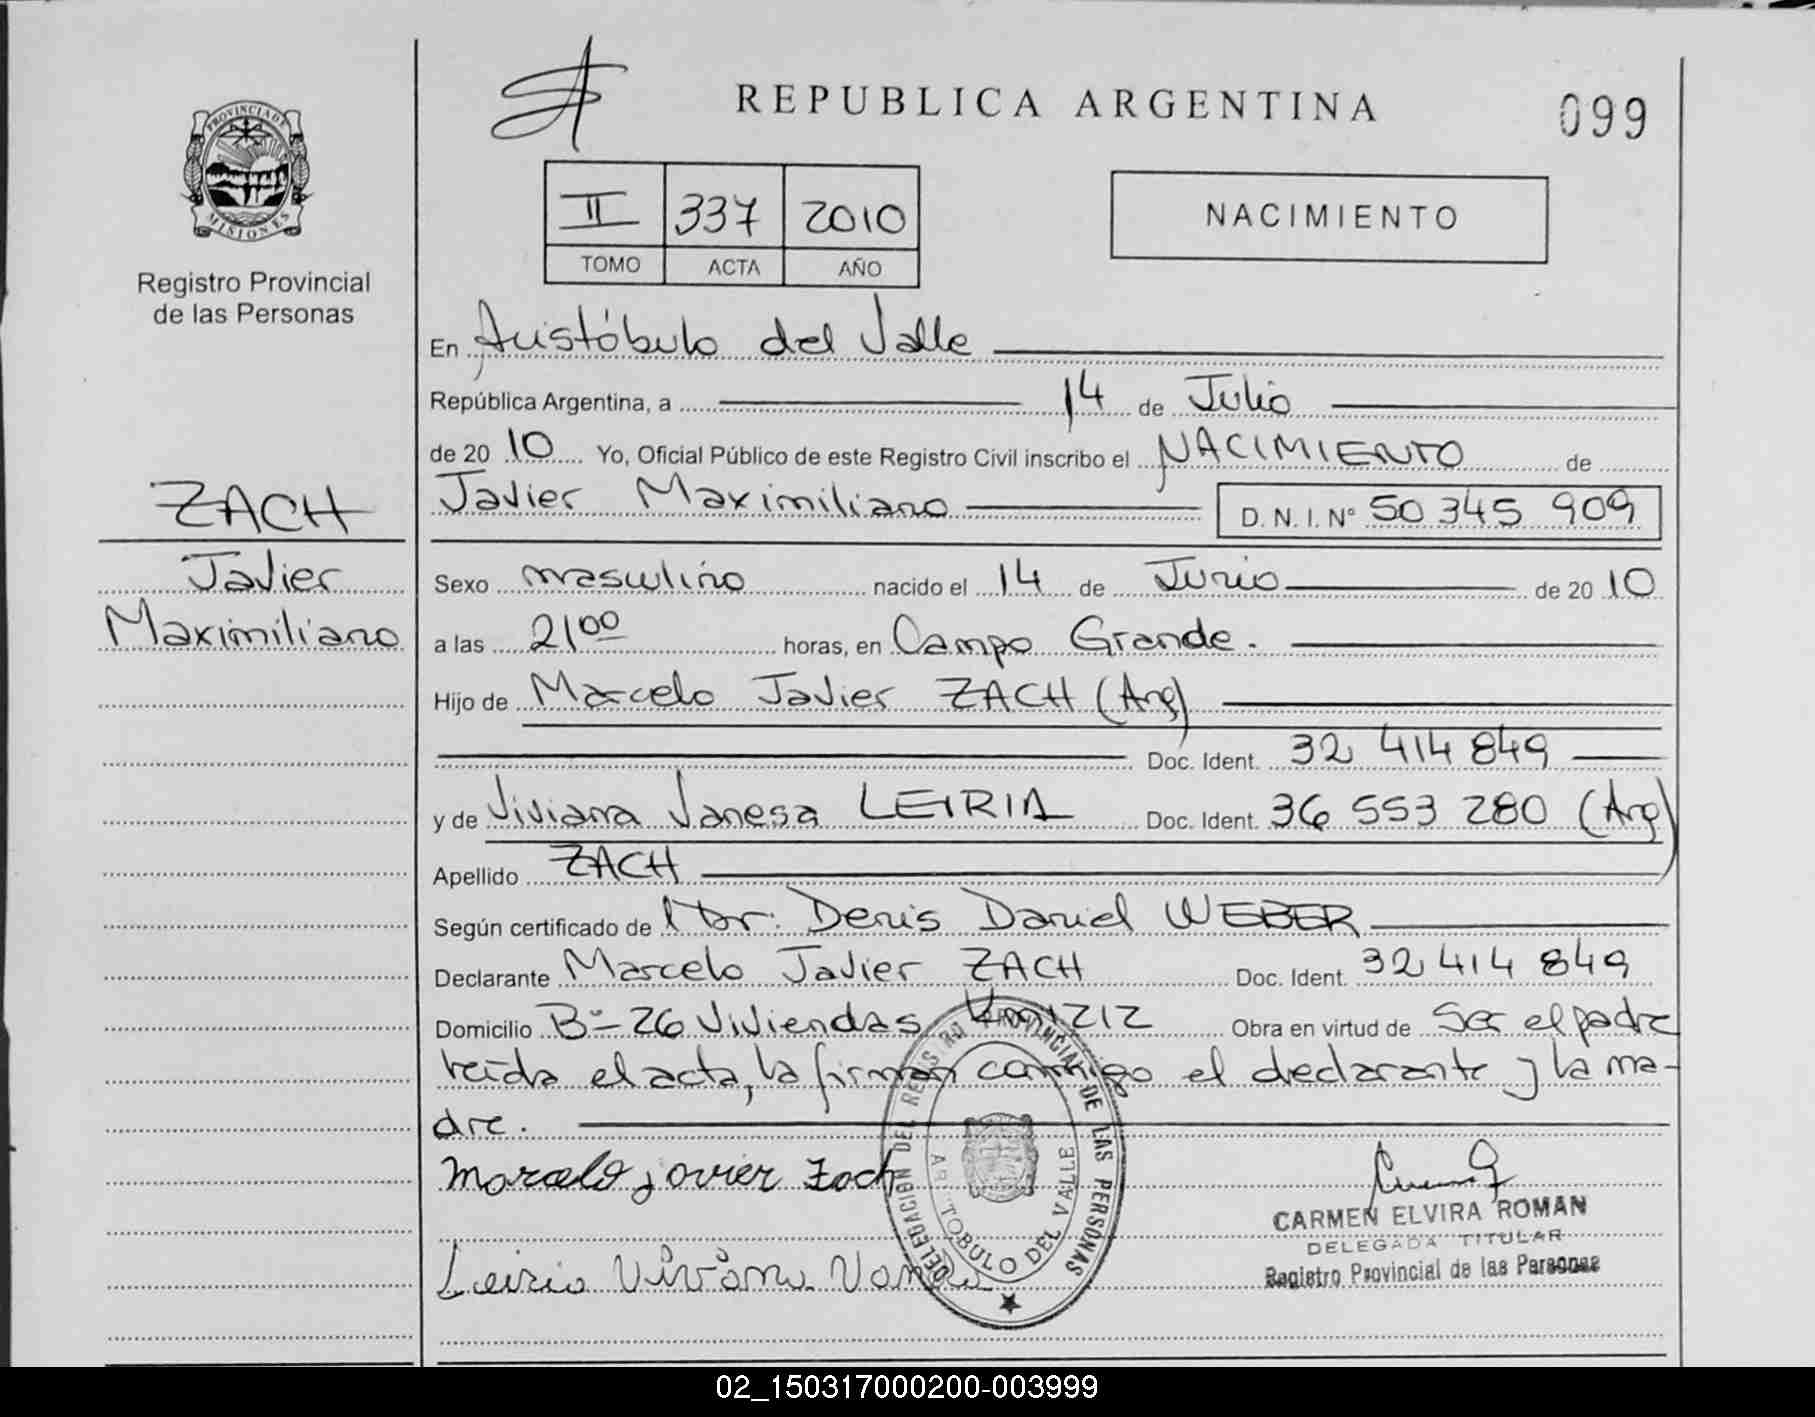 REPUBLICA ARGENTINA
099
PROVINCIA DE MISIONES
Registro Provincial
de las Personas
II 337 2010
TOMO ACTA AÑO
NACIMIENTO
En Aristóbulo del Valle
República Argentina, a 14 de Julio
de 20 10 Yo, Oficial Público de este Registro Civil inscribo el NACIMIENTO de
Javier Maximiliano D.N.I. Nº 50 345 909
ZACH
Javier
Maximiliano
Sexo masculino nacido el 14 de Junio de 20 10
a las 21 00 horas, en Campo Grande.
Hijo de Marcelo Javier ZACH (Arg)
Doc. Ident. 32 414 849
y de Viviana Vanesa LEIRIA Doc. Ident. 36 553 280 (Arg)
Apellido ZACH
Según certificado de Dr. Denis Daniel WEBER
Declarante Marcelo Javier ZACH Doc. Ident. 32 414 849
Domicilio Bº-26 Viviendas Km 1212 Obra en virtud de Ser el padre
leída el acta, la firman conmigo el declarante y la ma-
dre.
Marcelo Javier Zach
Leiria Viviana Vanesa
DELEGACION DEL REGISTRO PROVINCIAL DE LAS PERSONAS
ARISTOBULO DEL VALLE
CARMEN ELVIRA ROMAN
DELEGADA TITULAR
Registro Provincial de las Personas
02_150317000200-003999